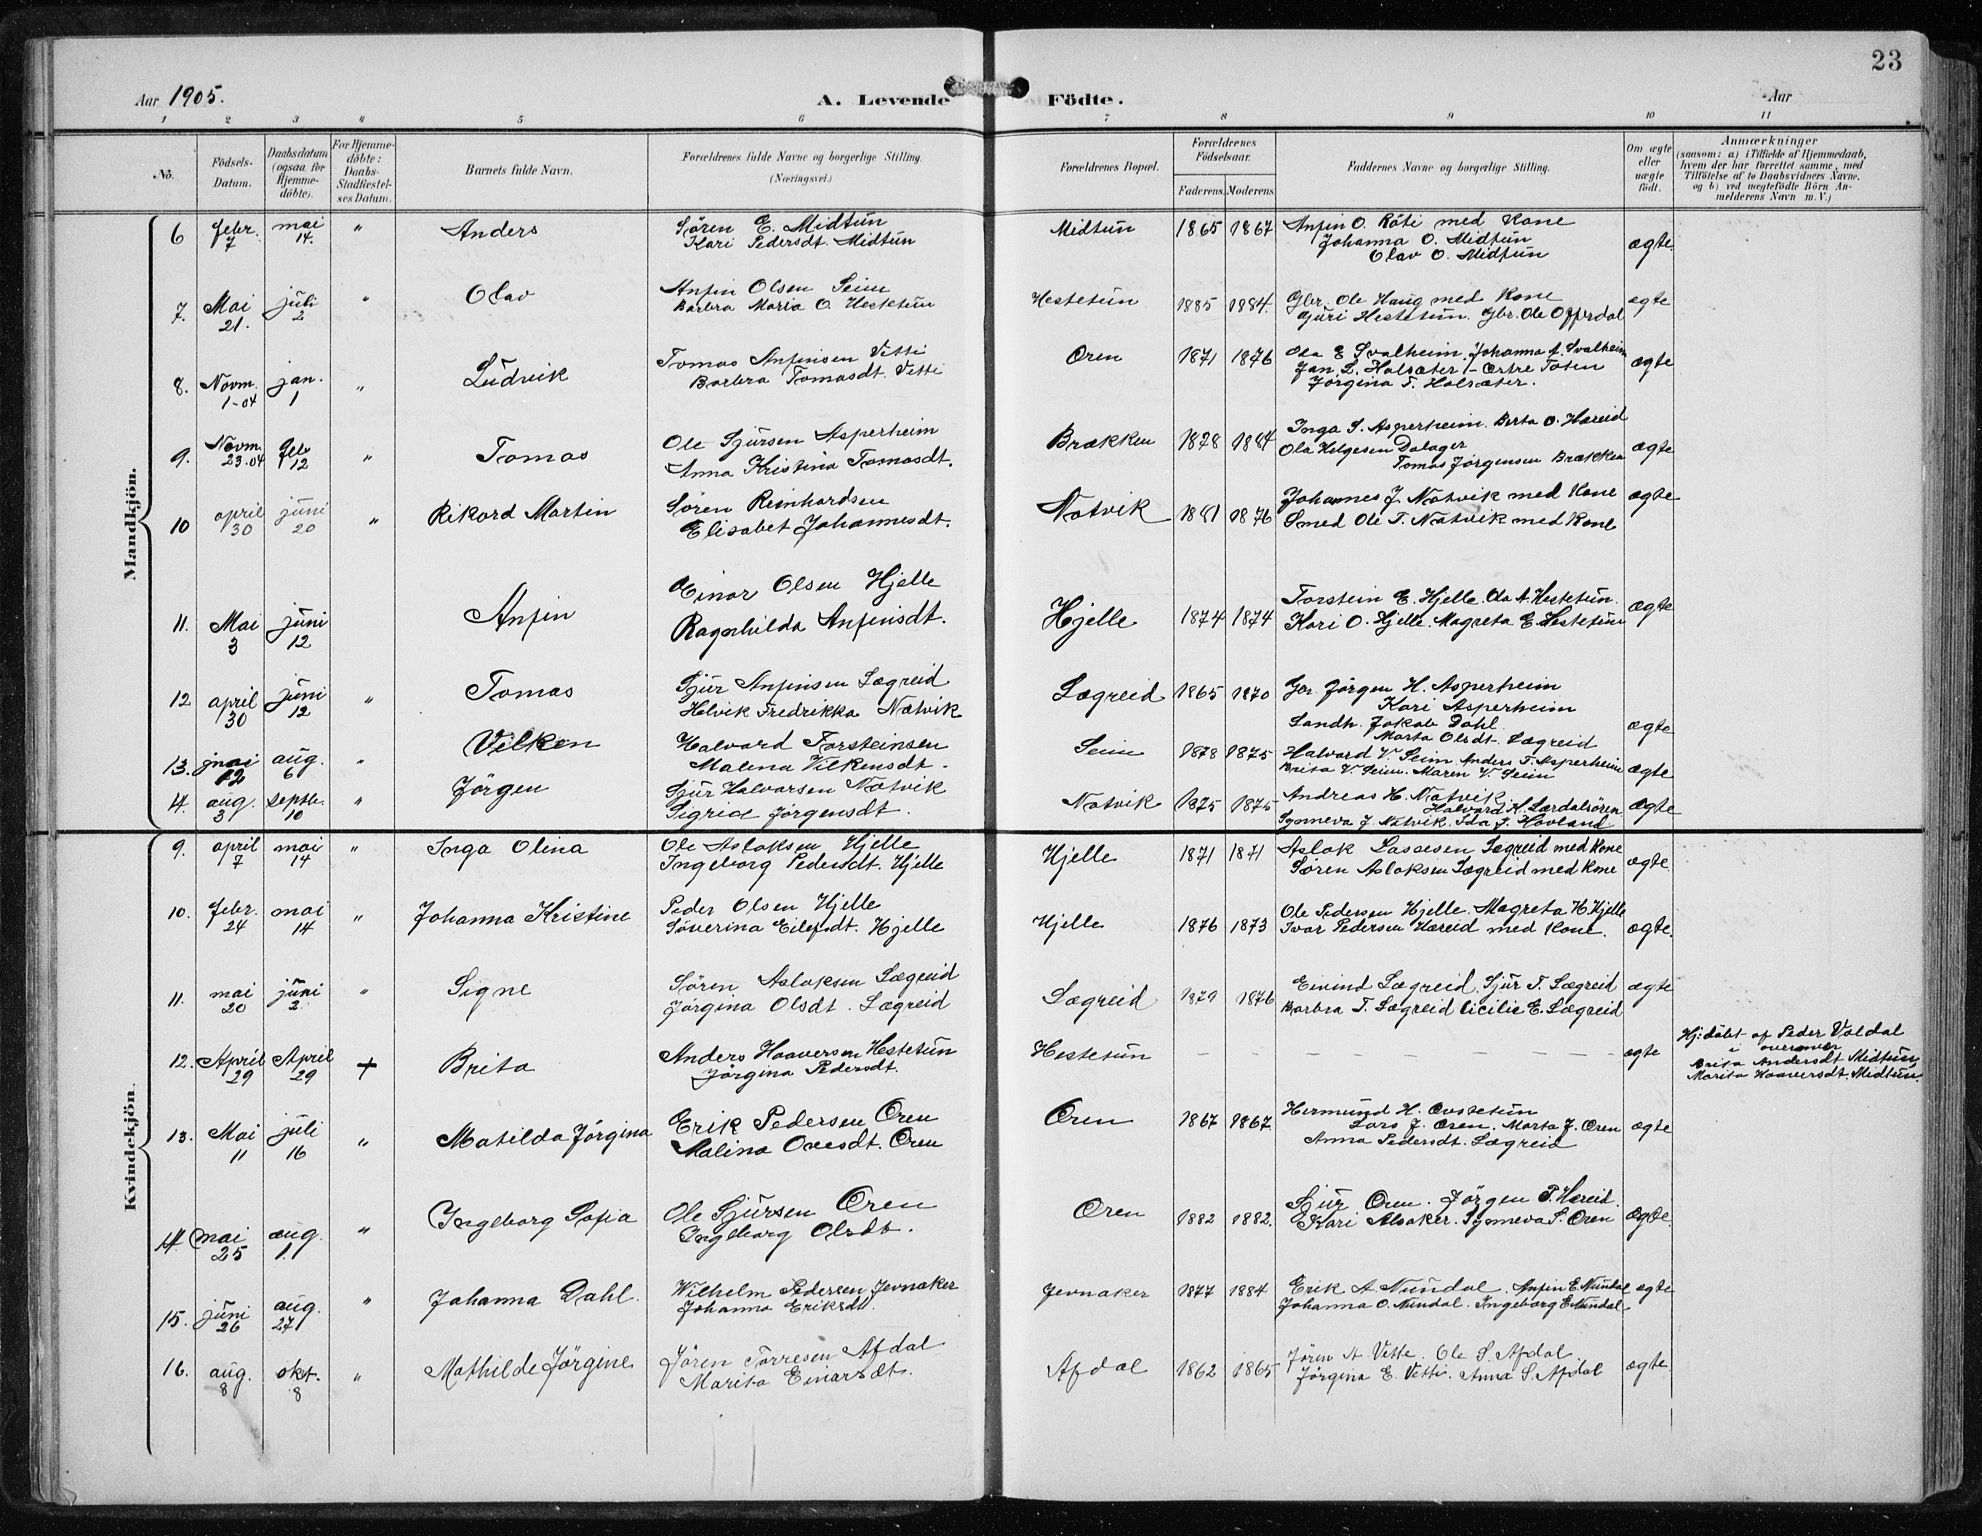 23
Aar 1905. A. Levende Födte. Aar
1 2 3 4 5 6 7 8 9 10 11
No. Födsels-Datum. Daabsdatum (ogsaa for Hjemmedöbte). For Hjemmedöbte: Daabs-Stadfæstelses Datum. Barnets fulde Navn. Forældrenes fulde Navne og borgerlige Stilling. (Næringsvei.) Forældrenes Bopæl. Forældrenes Födselsaar. Faderens. Moderens. Faddernes Navne og borgerlige Stilling. Om ægte eller uægte födt. Anmærkninger (saasom: a) i Tilfælde af Hjemmedaab, hvem der har forrettet samme, med Tilföielse af to Daabsvidners Navne, og b) ved uægtefödte Börn Anmelderens Navn m. V.)
Mandkjön.
6 febr. 7 mai 14. " Anders Sören E. Midtun Midtun 1865 1867 Anfin O. Räti med Kone ægte.
Kari Pedersdt. Midtun Johanna O. Midtun
Olav O. Midtun
7. Mai 21. juli 2 " Olav Anfin Olsen Seim Hestetun 1885 1884. Gbr. Ole Haug med Kone ægte
Barbra Maria O. Hestetun Guri Hestetun. Gbr. Ole Offerdal
8. Novm. 1-04 jan. 1 " Ludvik Tomas Anfinsen Vetti Ören 1871 1876 Ola E Svalheim. Johanna A. Svalheim ægte
Barbra Tomasdt. Vetti Jan L. Halsæter - Östre Toten
Jörgina T. Halsæter.
9. Novm. 23.04 feb 12 " Tomas Ole Sjursen Asperheim Brækken 1878 1884 Inga S. Asperheim. Berta O. Hæreid ægte
Anna Kristina Tomasdt. Ola Helgesen Dalager
Tomas Jörgensen Brækken
10 april 30 juni 20 " Rikard Martin Sören Reinhardsen Natvik 1881 1876 Johannes J. Natvik med Kone ægte
Elisabet Johannesdt. Smed Ole T. Natvik med Kone
11. Mai 3 juni 12 Anfin Einar Olsen Hjelle Hjelle 1874 1874 Torstein E. Hjelle. Ola A. Hestetun. ægte
Ragnhilda Anfinsdt. Kari O. Hjelle. Magreta E. Hestetun
12 april 30 juni 12 " Tomas Sjur Anfinsen Lægreid Lægreid 1865 1870 Gbr. Jörgen H. Asperheim
Helvik Fredrikka Natvik Kari Asperheim
Landh. Jakob Dahl. ægte
Marta Olsdt. Lægreid
13. mai 12 aug. 6 " Vilken Halvard Torsteinsen Seim 1878 1875 Halvard V. Seim. Anders T. Asperheim ægte
Malena Vilkensdt. Brita V. Seim. Maren V. Seim
14. aug. 3 septbr. 10 " Jörgen Sjur Halvarsen Natvik Natvik 1875 1875 Andreas H. Natvik ægte
Sigrid Jörgensdt. Halvard A. Lærdalsören
Synneva J. Natvik. Ida J. Hovland
Kvindekjön.
9. april 7 mai 14 " Inga Olina Ole Aslaksen Hjelle Hjelle 1871 1871 Aslak Lassesen Lægreid med Kone ægte.
Ingeborg Pedersdt. Hjelle Sören Aslaksen Lægreid med Kone
10. febr. 24 mai 14 " Johanna Kristine Peder Olsen Hjelle Hjelle 1876 1873 Ole Pedersen Hjelle. Magreta H. Hjelle ægte.
Söverina Eilefsdt. Hjelle Ivar Pedersen Hæreid med Kone.
11. mai 20 juni 2 " Signe Sören Aslaksen Lægreid Lægreid 1879 1876 Eivind Lægreid. Sjur T. Lægreid ægte
Jörgina Olsdt. Lægreid Barbra T. Lægreid Cicilie E. Lægreid
12. April 29 April 29 + Brita Anders Haaversen Hestetun Hestetun - - - - - - - ægte Hj.döbt af Peder Valdal
Jörgina Pedersdt. i overvær
Brita Andersdt Midtun,
Marita Haaversdt. Midtun.
13. Mai 11 juli 16 " Matilda Jörgina Erik Pedersen Ören Ören 1867 1867. Hermund H. Ovstetun ægte
Malina Ovesdt. Ören Lars J. Ören. Marta J. Ören
Anna Pedersdt. Lægreid
14 mai 25 aug. 1. " Ingeborg Sofia Ole Sjursen Ören Ören 1882 1882. Sjur Ören. Jörgen P. Hæreid. ægte.
Ingeborg Olsdt. Kari Alsaker. Synneva S. Ören
15. juni 26 aug. 27 " Johanna Dahl. Wilhelm Pedersen Jevnaker Jevnaker 1877 1884 Erik A. Nundal. Anfin E. Nundal ægte
Johanna Eriksdt. Johanna O. Nundal. Ingeborg E. Nundal
16. aug. 8 okt. 8 " Mathilde Jörgine Jören Torresen Afdal Afdal 1862 1865 Jören A. Vette. Ole S. Afdal ægte
Marita Einarsdt. Jörgina E. Vetti. Anna S. Afdal